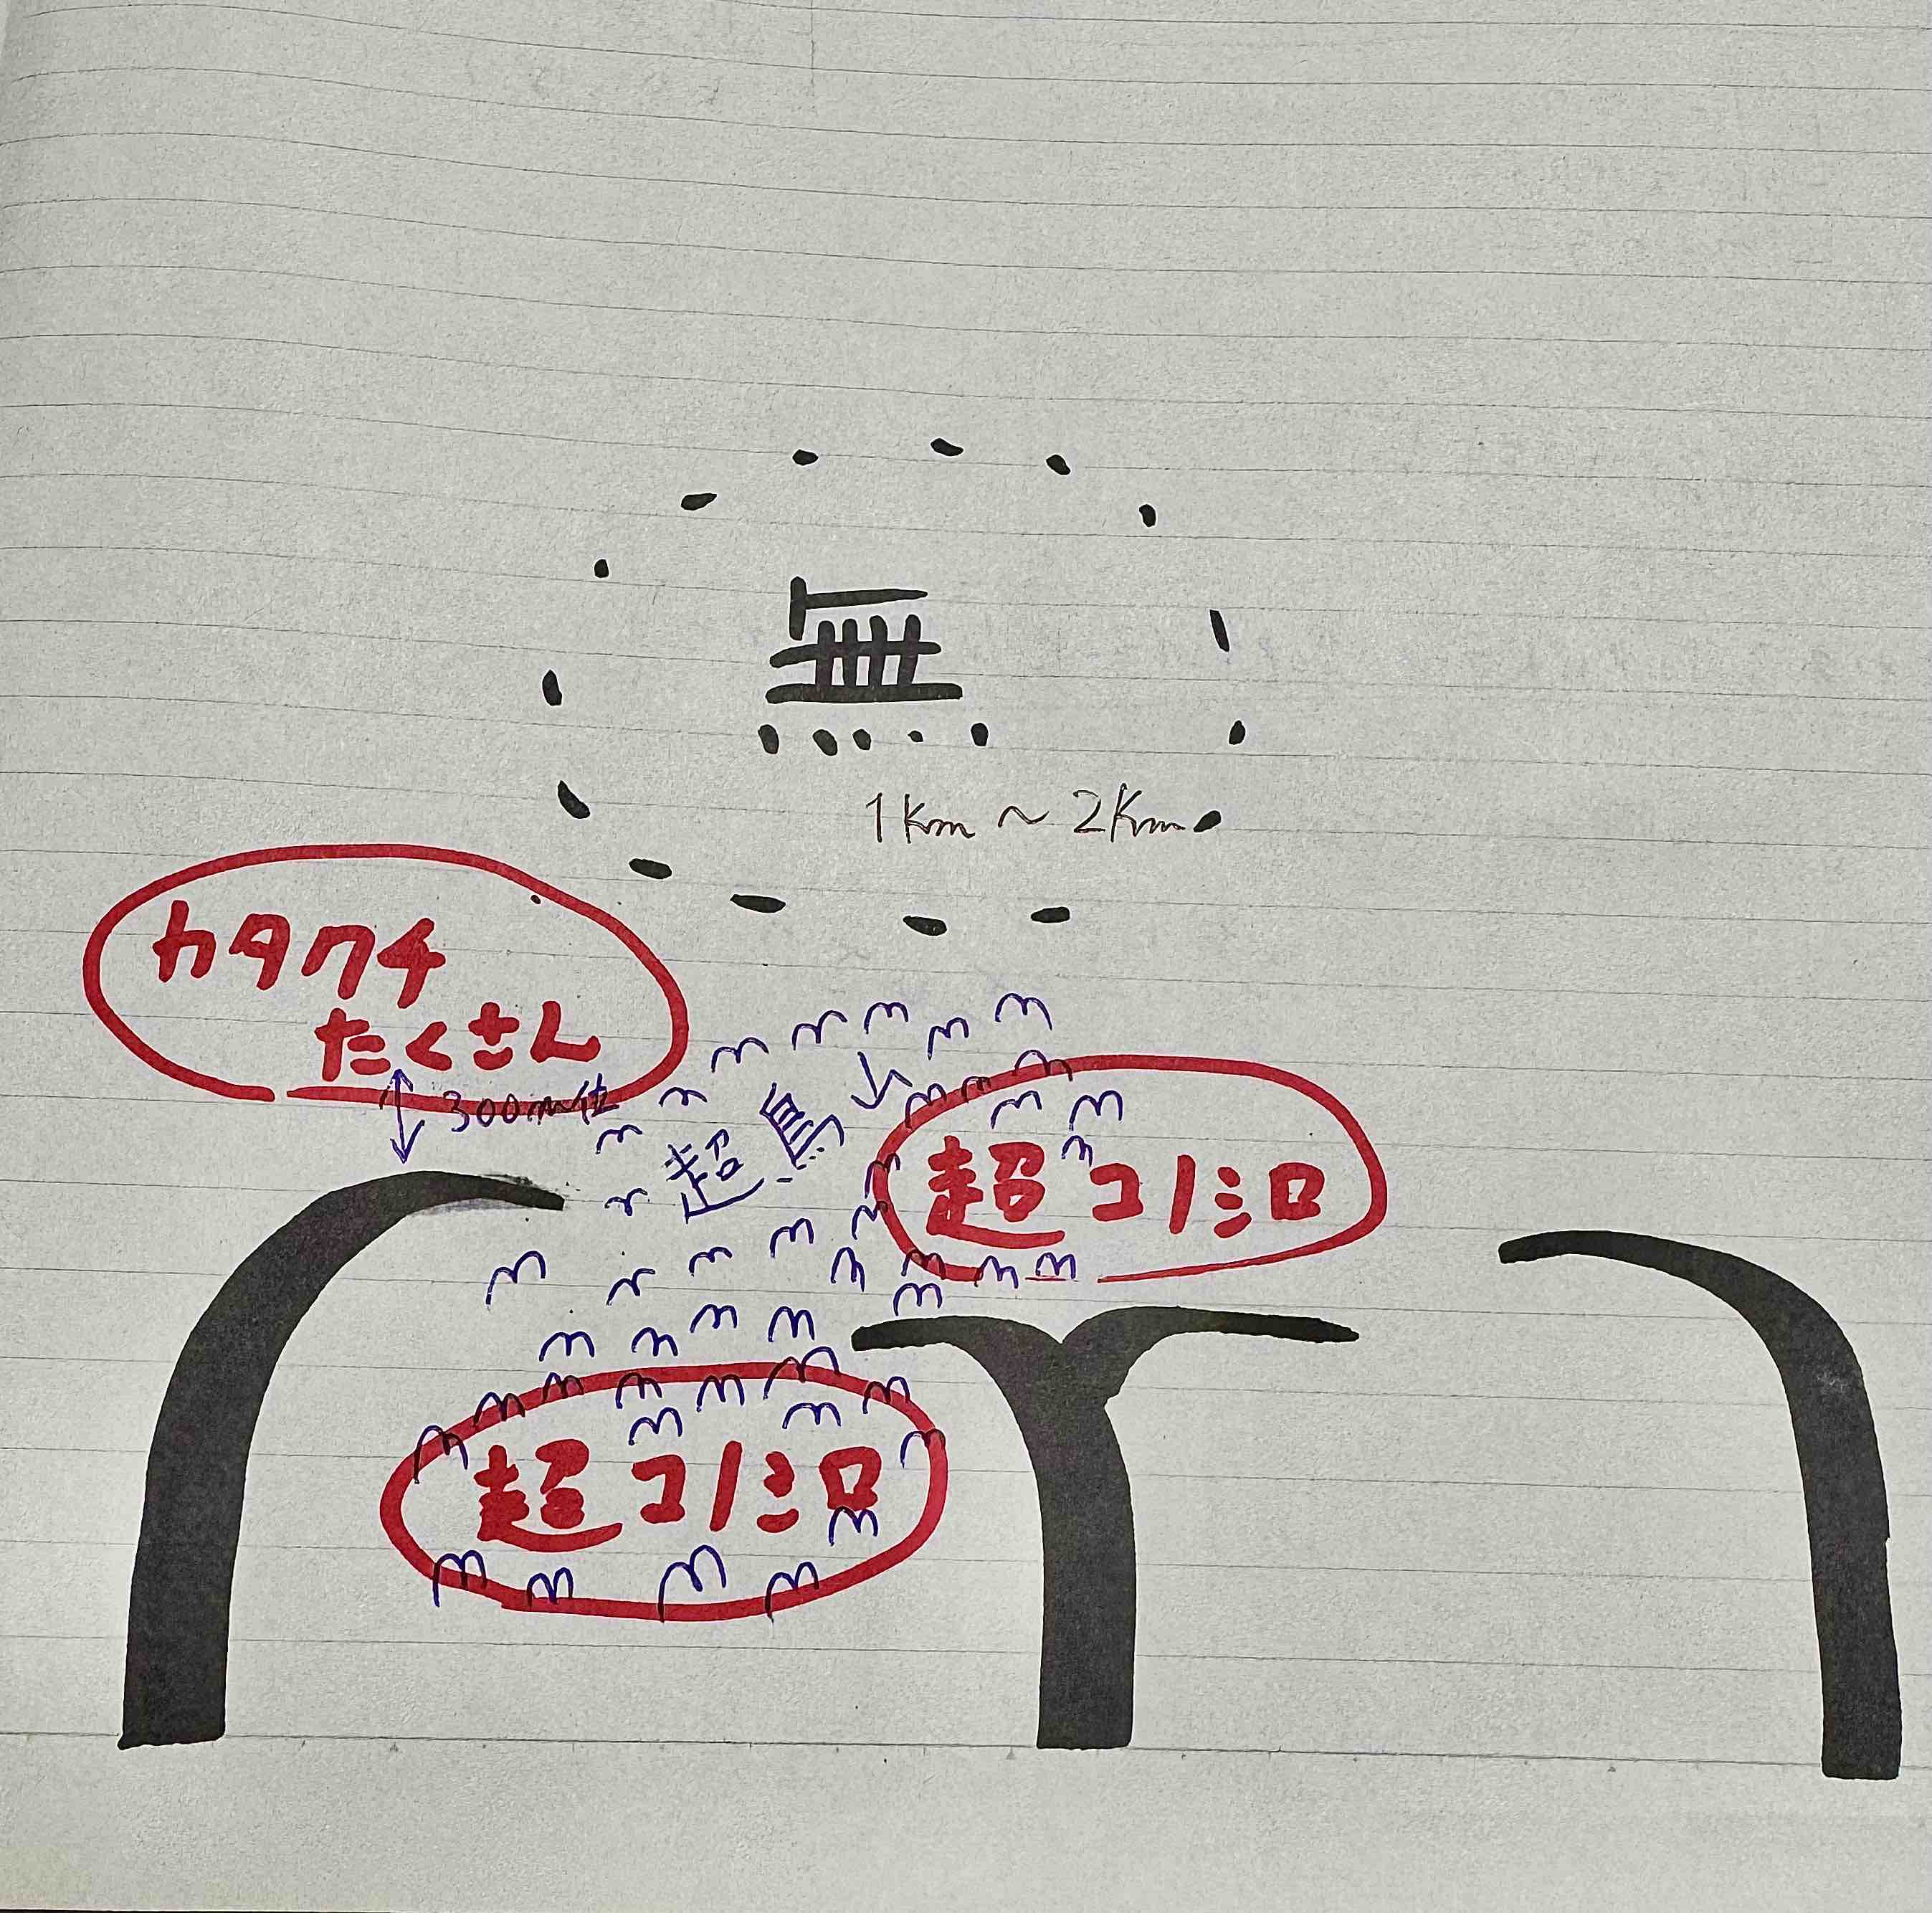 無
1Km～2Km
カタクチ
たくさん
300m位
超鳥
超コノミロ
超コノミロ